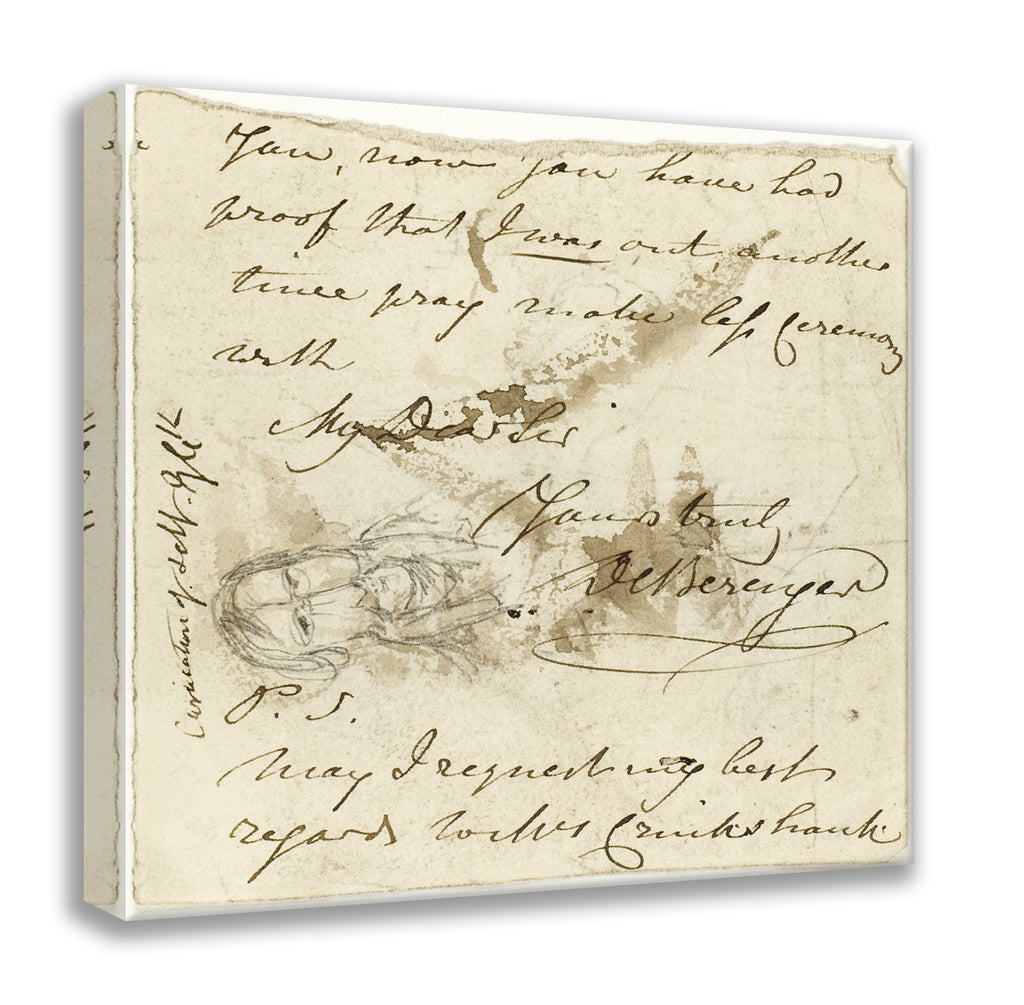 You, now you have had
proof that I was out, another
time pray make less Ceremony
with
My Dear Sir
Yours truly
De Berenger
P. S.
may I request my best
regards to Mrs Cruikshank
Caricature of